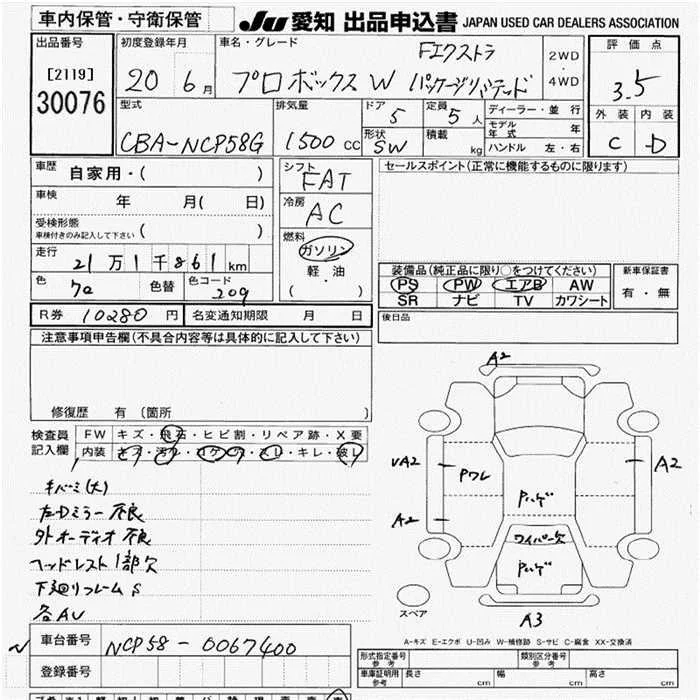 車内保管・守衛保管 JU 愛知 出品申込書 JAPAN USED CAR DEALERS ASSOCIATION
出品番号 [2119] 30076
初度登録年月 20 6月
車名・グレード プロボックスW Fエクストラ パッケージリミテッド
2WD・4WD
評価点 3.5
外装 C 内装 D
型式 CBA-NCP58G
排気量 1500 CC
ドア 5 定員 5人
形状 SW 積載 kg
ディーラー・並行
モデル年式 年
ハンドル 左・右
車歴 自家用・( )
車検 年 月( 日)
受検形態 ( )
車検付きのみ記入して下さい
走行 21万1千861km
色 色替 色コード 209
シフト FAT
冷房 AC
燃料 ガソリン
軽・油
( )
セールスポイント(正常に機能するものに限ります)
装備品(純正品に限り○をつけてください)
PS PW エアB AW
SR ナビ TV カワシート
新車保証書 有・無
R券 10280円 名変通知期限 月 日
後日品
注意事項申告欄(不具合内容等は具体的に記入して下さい)
修復歴 有 〔箇所 〕
検査員記入欄
FW キズ・飛石・ヒビ割・リペア跡・X要
内装 キズ・汚れ・コゲ・穴・スレ・キレ・破レ
キバミ(大)
左Dミラー不良
外オーディオ不良
ヘッドレスト1部欠
下廻リフレームS
各AU
A2
VA2
Pワレ
A2
A2
Pハゲ
ワイパー欠
Pハゲ
A3
スペア
A-キズ E-エクボ U-凹み W-補修跡 S-サビ C-腐食 XX-交換済
車台番号 NCP58-0067400
登録番号
型式指定番号 参考 類別区分番号 参考
車庫証明用 参考 長さ cm 幅 cm 高さ cm